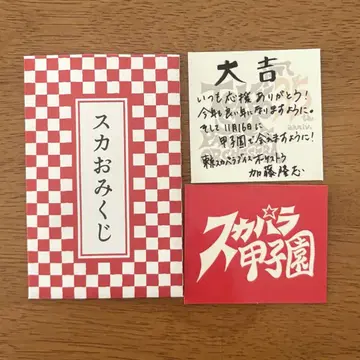 スカおみくじ
大吉
いつも応援ありがとう！
今年も良い年になりますように。
そして11月16日に
甲子園で会えますように！
東京スカパラダイスオーケストラ
加藤隆志
スカパラ
甲子園